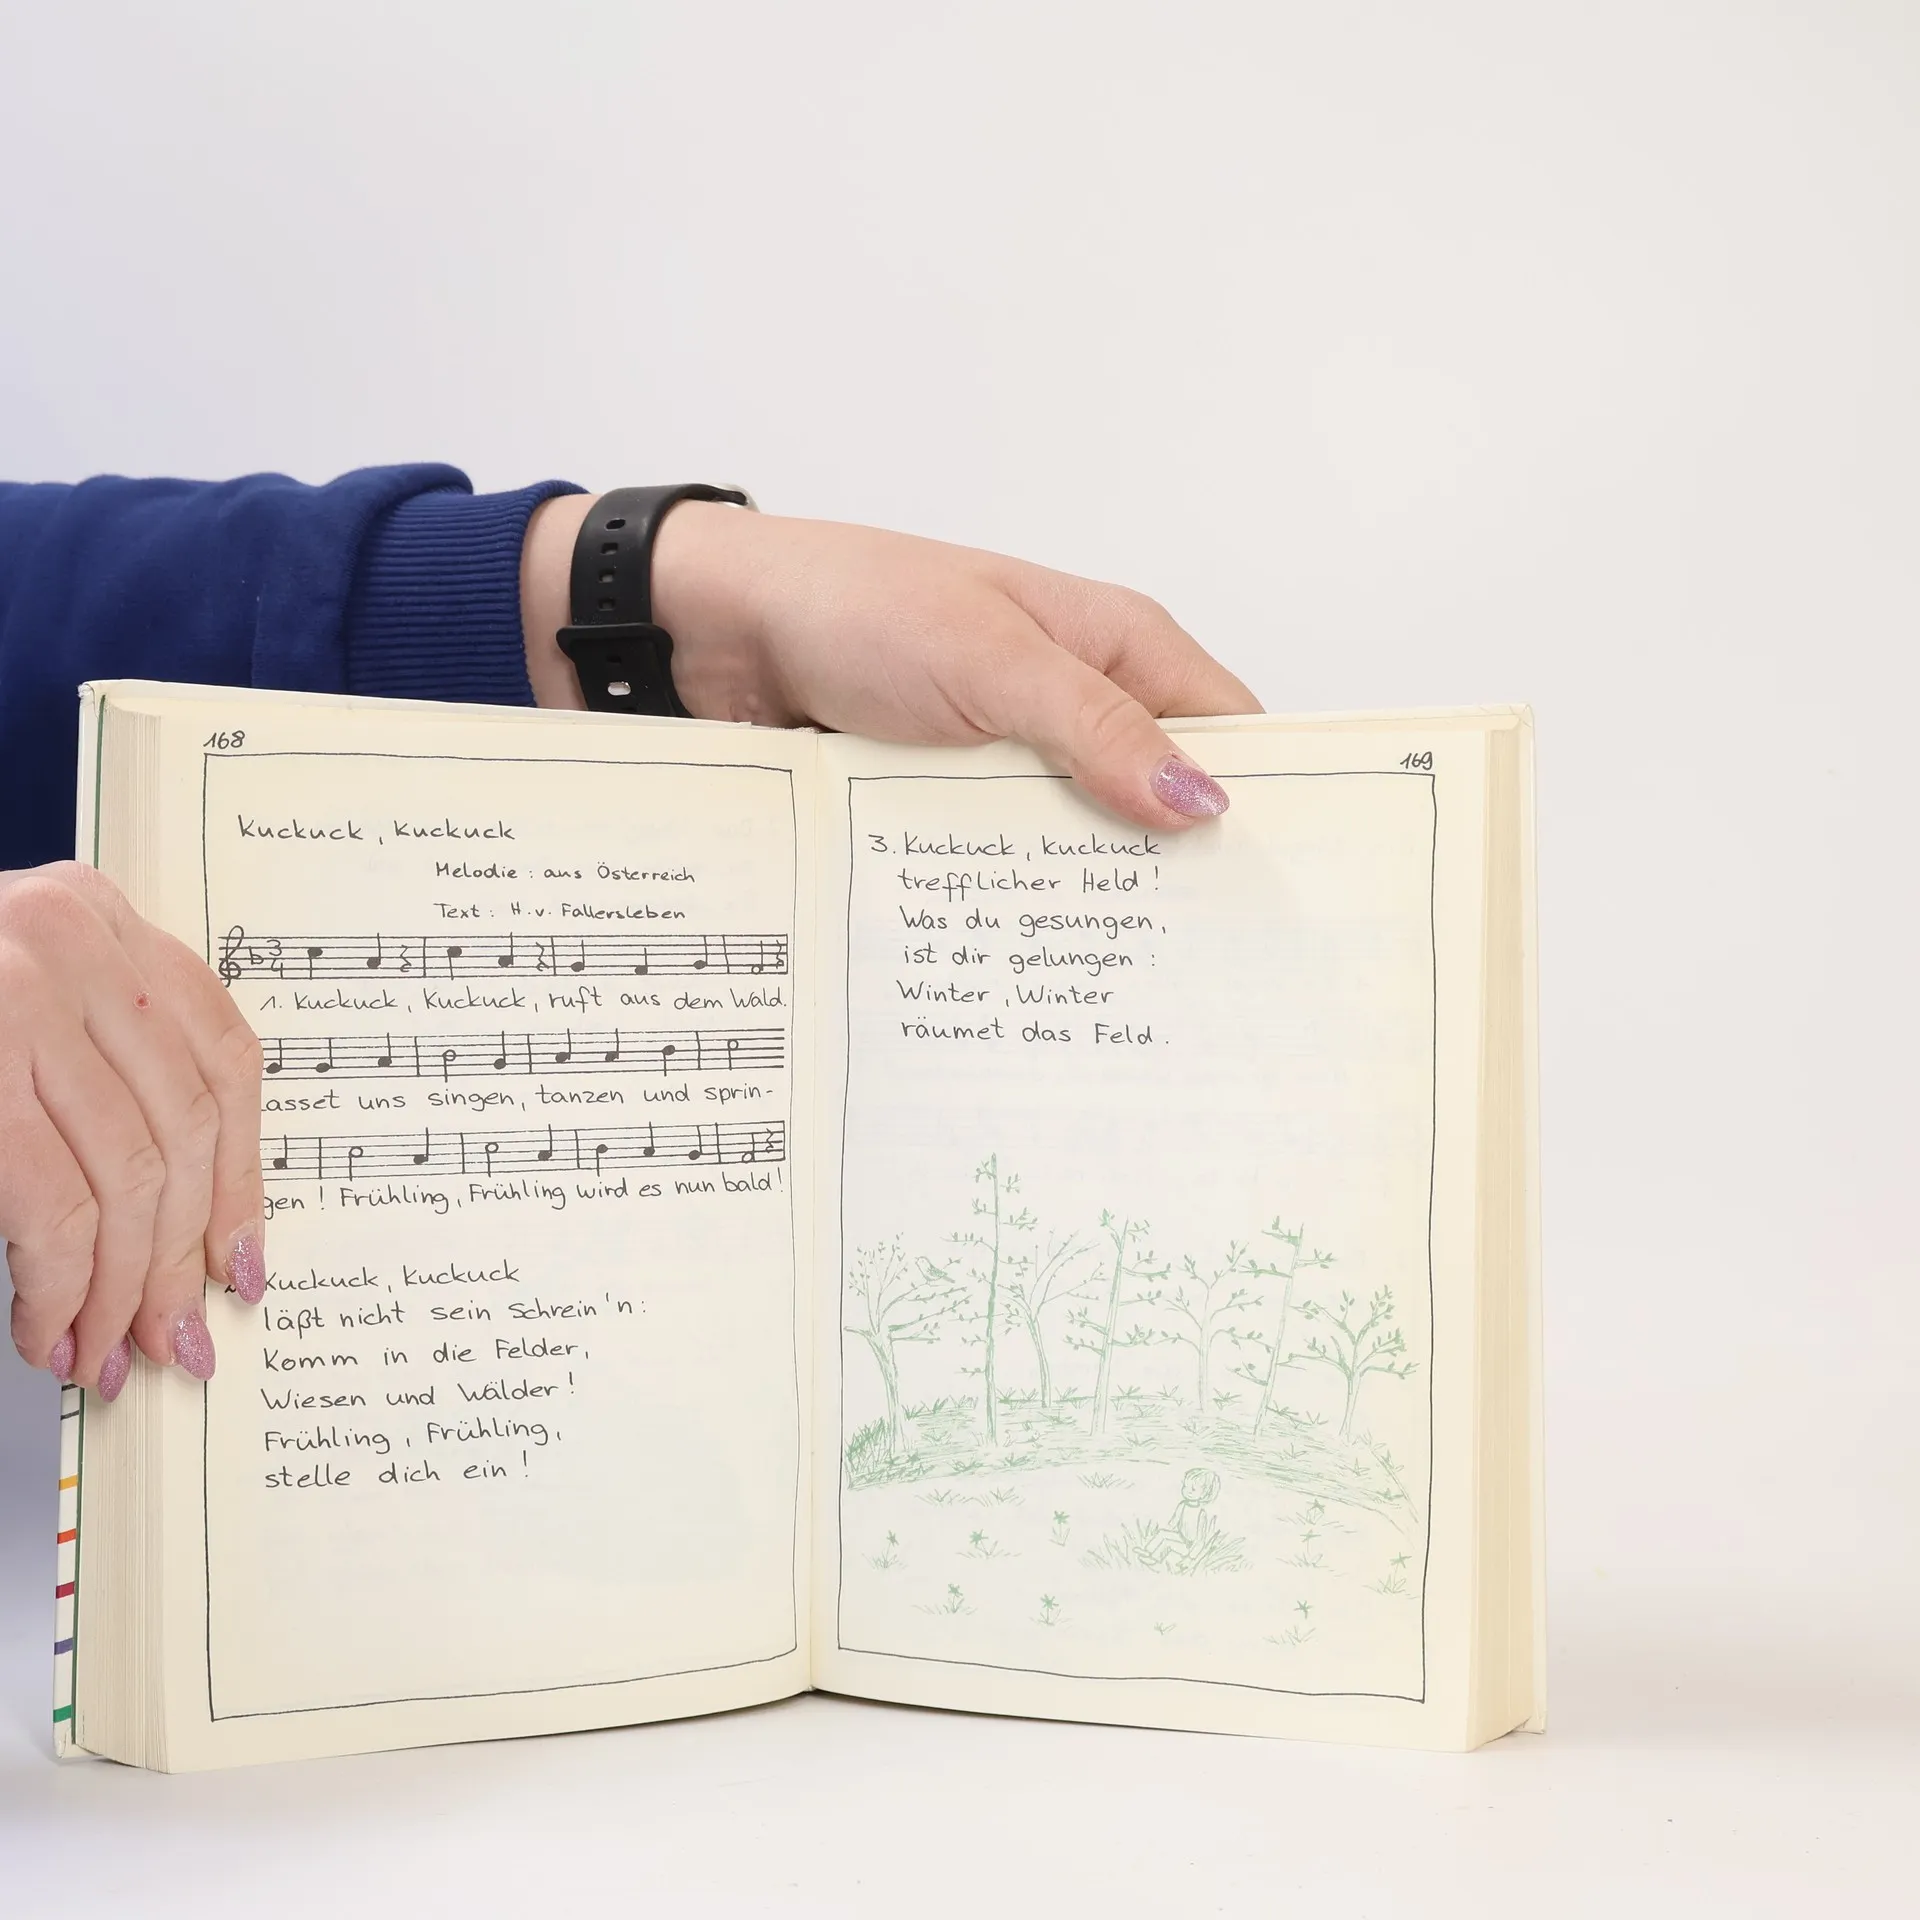 168
Kuckuck, Kuckuck
Melodie: aus Österreich
Text: H. v. Fallersleben
3
4
1. Kuckuck, Kuckuck, ruft aus dem Wald.
Lasset uns singen, tanzen und sprin-
gen! Frühling, Frühling wird es nun bald!
Kuckuck, Kuckuck
läßt nicht sein Schrein'n:
Komm in die Felder,
Wiesen und Wälder!
Frühling, Frühling,
stelle dich ein!
169
3. Kuckuck, Kuckuck
trefflicher Held!
Was du gesungen,
ist dir gelungen:
Winter, Winter
räumet das Feld.